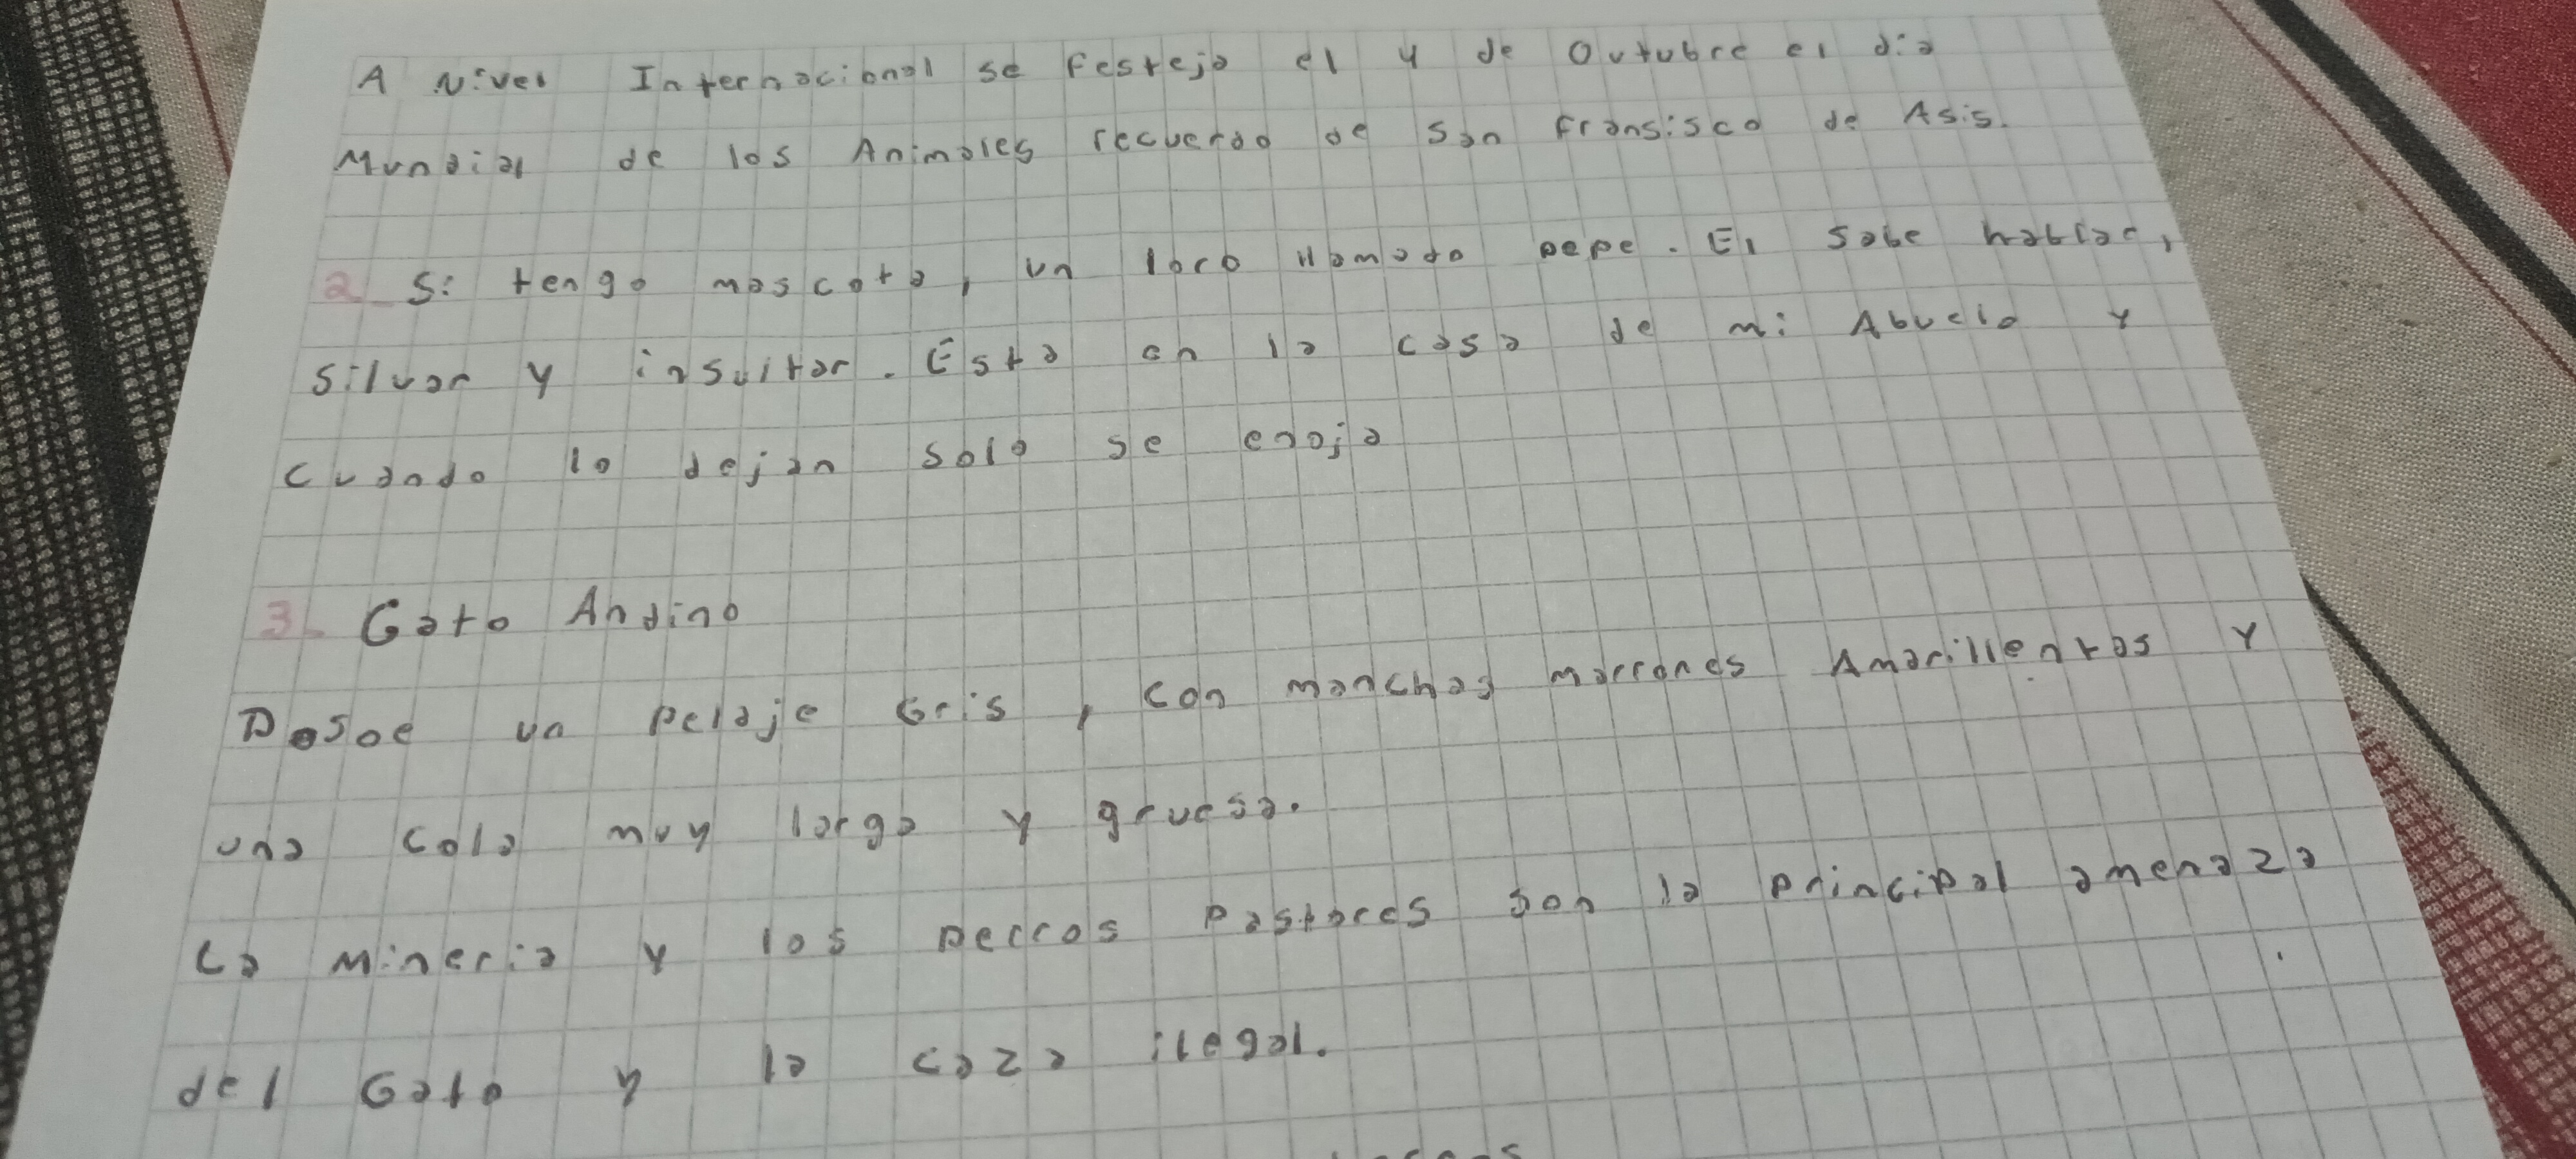 A Nivel Internacional se festeja el 4 de Outubre el dia
Mundial de los Animales recuerdo de San Fransisco de Asis.
2_ Si tengo mascota, un loro llamado pepe. El sabe hablar,
silvar y insultar. Esta en la casa de mi Abuelo y
cuando lo dejan solo se enoja
3_ Gato Andino
Posoe un pelaje Gris, con manchas marrones Amarillentas y
una cola muy larga y gruesa.
La mineria y los perros pastores son la principal amenaza
del Gato y la caza ilegal.